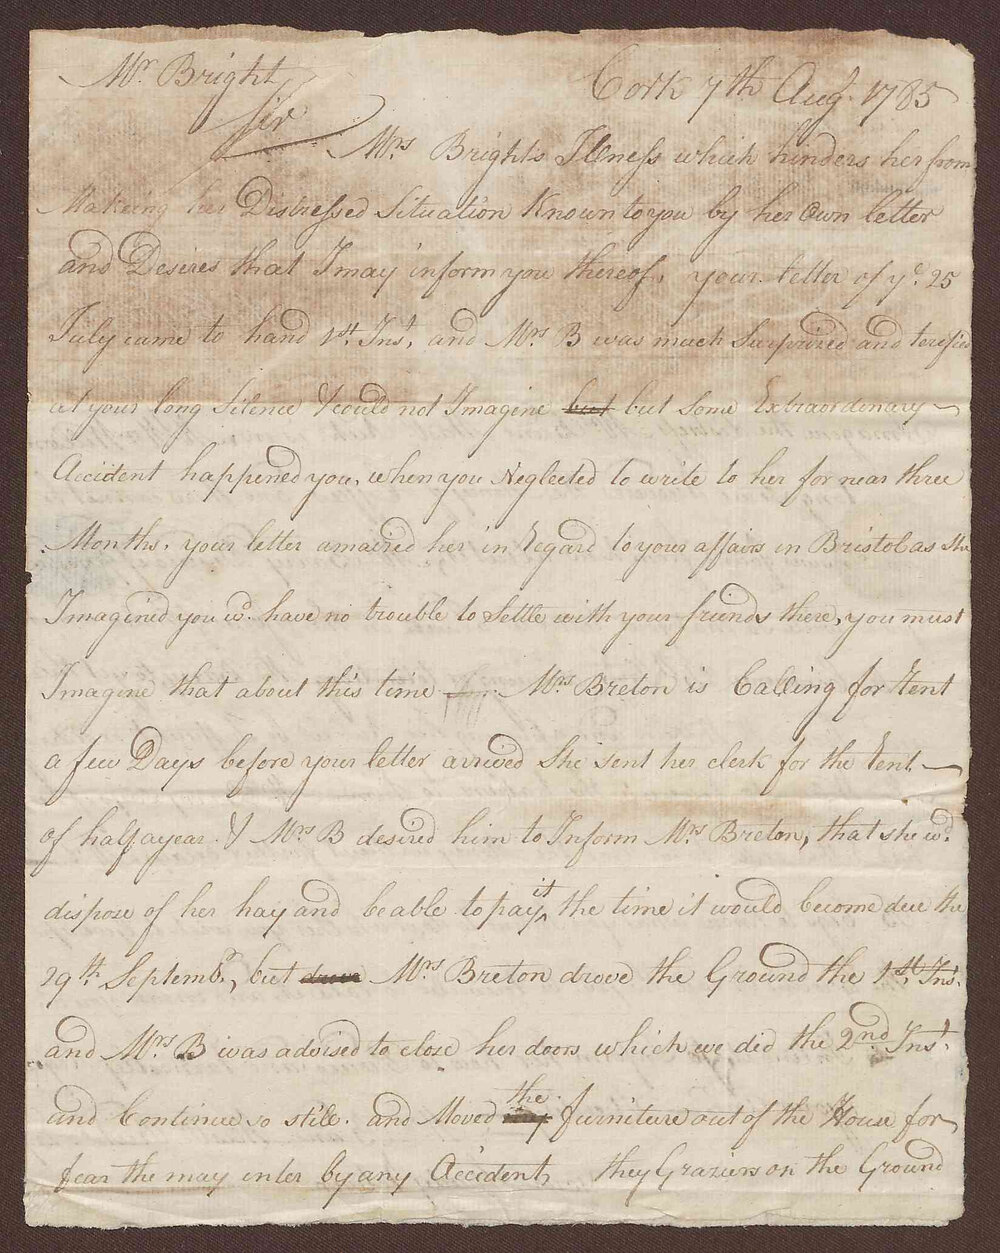 Mr. Bright
Cork 7th Aug. 1785
Sir
Mrs Bright's Illness which hinders her from
Makeing her Distressed Situation Known to you by her Own letter
and Desires that I may inform you thereof, your letter of ye. 25
July came to hand 1st. Inst, and Mrs B was much Surprized and terified
at your long Silence & could not Imagine but but some Extraordinary
Accident happened you, when you Neglected to write to her for near three
Months, your letter amaized her in Regard to your affairs in Bristol as she
Imagin'd you wd. have no trouble to Settle with your friends there, you must
Imagine that about this time Mrs Breton is Calling for Rent
a few Days before your letter arrived She sent her clerk for the Rent
of half a year. & Mrs B desired him to Inform Mrs Breton, that she wd.
dispose of her hay and be able to pay it the time it would become due the
29th. Septembr, but drove Mrs Breton drove the Ground the 1st. Inst.
and Mrs B was advised to close her doors which we did the 2nd Inst.
and Continue so still. and Moved the furniture out of the House for
fear the may inter by any Accident, they Graziers on the Ground